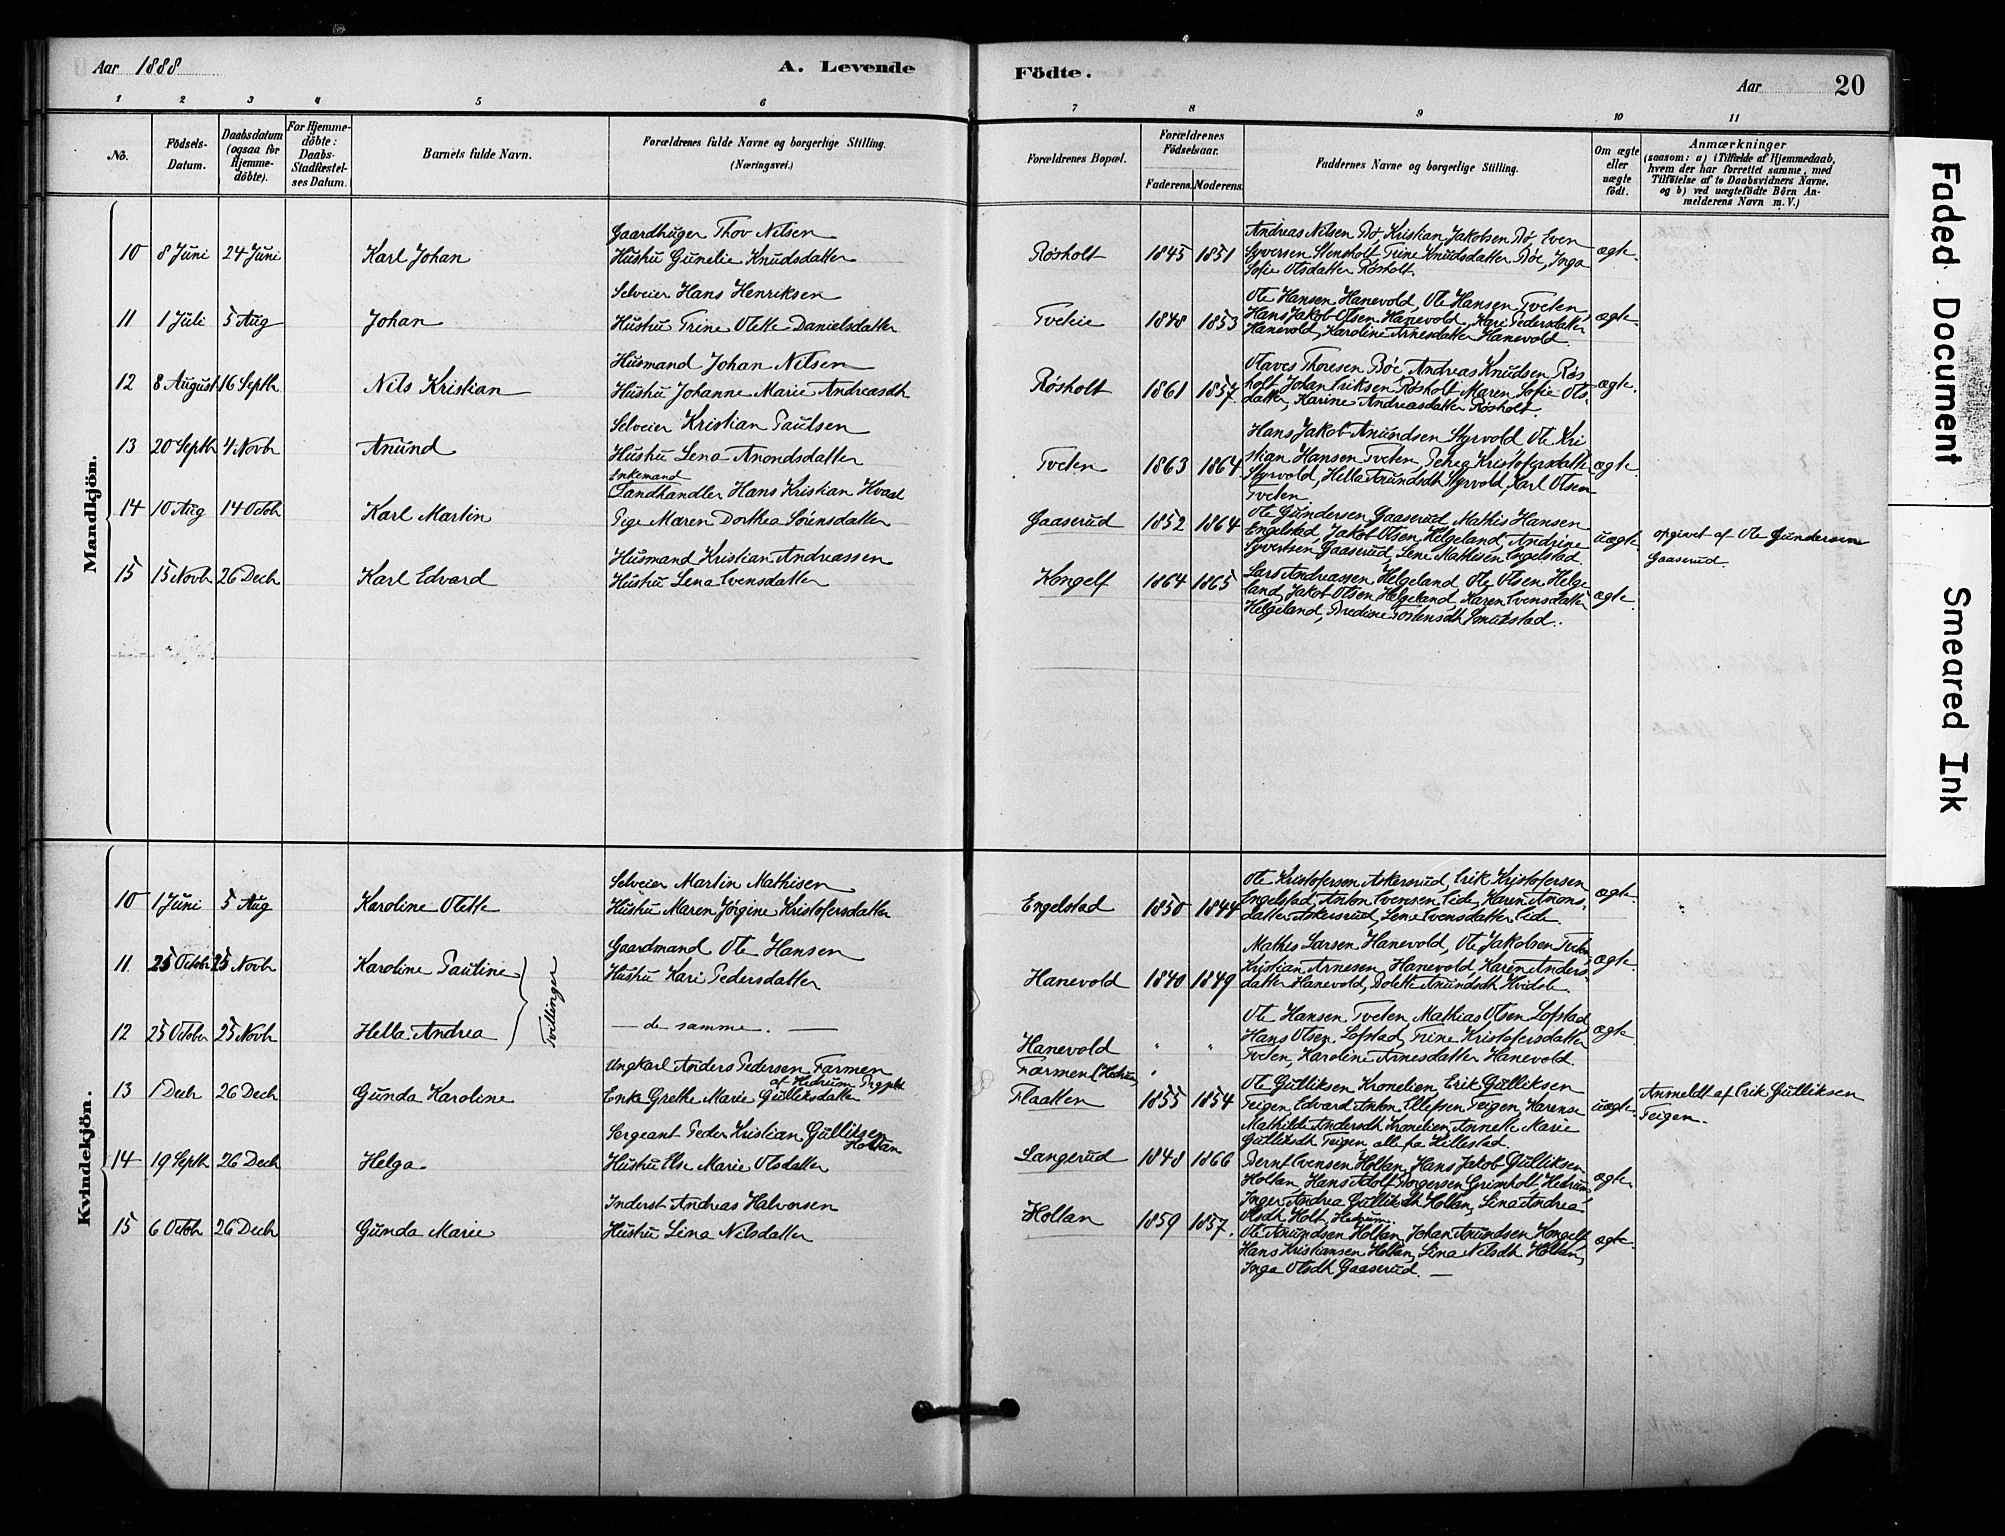 Aar 1888
A. Levende
Födte.
Aar
20
1 2 3 4 5 6 7 8 9 10 11
No.
Födsels-Datum.
Daabsdatum (ogsaa for Hjemme-döbte).
For Hjemme-döbte: Daabs-Stadfæstel-ses Datum.
Barnets fulde Navn.
Forældrenes fulde Navne og borgerlige Stilling. (Næringsvei.)
Forældrenes Bopæl.
Forældrenes Födselsaar.
Faderens. Moderens.
Faddernes Navne og borgerlige Stilling.
Om ægte eller uægte födt.
Anmærkninger
(saasom: a) i Tilfælde af Hjemmedaab, hvem der har forrettet samme, med Tilföielse af to Daabsvidners Navne, og b) ved uægtefödte Börn An-melderens Navn m. V.)
Mandkjön.
Gaardbruger Thov Nilsen
10 8 Juni 24 Juni Karl Johan Hustru Gunelie Knudsdatter Røsholt 1845 1851
Andreas Nilsen Bø, Kristian Jakobsen Bø, Even
Syversen Stensholt, Trine Knudsdatter Bøe, Inga
Sofie Olsdatter Røsholt.
ægte.
Selveier Hans Henriksen
11 1 Juli 5 Aug Johan Hustru Trine Olette Danielsdatter Tveteie 1848 1853
Ole Hansen Hanevold, Ole Hansen Tveten,
Hans Jakob Olsen Hanevold, Kari Pedersdatter
Hanevold, Karoline Arnesdatter Hanevold.
ægte.
Husmand Johan Nilsen
12 8 August 16 Septb Nils Kristian Hustru Johanne Marie Andreasdt Røsholt 1861 1857
Olaves Thoresen Bøe, Andreas Knudsen Røs
holt, Johan Eriksen Røsholt, Maren Sofie Ols
datter, Karine Andreasdatter Røsholt.
ægte.
Selveier Kristian Paulsen
13 20 Septb 4 Novb Anund Hustru Lena Anondsdatter Tveten 1863 1864
Hans Jakob Anundsen Styrvold, Ole Kri
stian Hansen Tveten, Petrea Kristofersdatt
Styrvold, Hella Anundsdt Styrvold, Karl Olsen
Tveten.
ægte.
Enkemand
Landhandler Hans Kristian Hvaal
14 10 Aug 14 Octob Karl Martin Pige Maren Dorthea Sörensdatter Gaaserud 1852 1864
Ole Gundersen Gaaserud, Mathis Hansen
Engelstad, Jakob Olsen Helgeland, Andrine
Syvertsen Gaaserud, Lene Mathisen Engelstad.
uægte.
opgivet af Ole Gundersen
Gaaserud.
Husmand Kristian Andreassen
15 15 Novb 26 Decb Karl Edvard Hustru Lena Evensdatter Kongelf 1864 1865
Lars Andreassen Helgeland, Ole Olsen Helge
land, Jakob Olsen Helgeland, Karen Evensdatter
Helgeland, Bredine Tostensdt Smukstad.
ægte.
Kvindekjön.
Selveier Martin Mathisen
10 1 Juni 5 Aug Karoline Olette Hustru Maren Jörgine Kristofersdatter Engelstad 1850 1844
Ole Kristofersen Askersrud, Erik Kristofersen
Engelstad, Anton Evensen Eide, Karen Anons-
datter Askersrud, Lene Evensdatter Eide.
ægte.
Gaardmand Ole Hansen
11 25 Octobr 25 Novb Karoline Pauline Hustru Kari Pedersdatter Hanevold 1840 1849
Mathis Larsen Hanevold, Ole Jakobsen Tveten,
Kristian Arnesen Hanevold, Karen Anders-
datter Hanevold, Bolette Anundsdt Hvidste.
ægte.
Tvillinger
12 25 October 25 Novb Hella Andrea — de samme. — Hanevold " "
Ole Hansen Tveten, Mathias Olsen Lofstad,
Hans Olsen Lofstad, Trine Kristofersdatter
Tveten, Karoline Arnesdatter Hanevold.
ægte.
Ungkarl Anders Pedersen Farmen
af Hedrum Prgjeld
Farmen (Hedrum)
13 1 Decb 26 Decb Gunda Karoline Enke Grethe Marie Gulliksdatter Flaatten 1855 1854
Ole Gulliksen Kronelien, Erik Gulliksen
Teigen, Edvard Anton Ellefsen Teigen, Karense
Mathilde Andersdt Kronelien, Annette Marie
Gulliksdt Teigen, alle fra Hillestad.
uægte.
Anmeldt af Erik Gulliksen
Teigen.
Sergeant Peder Kristian Gulliksen
Holtan
14 19 Septb 26 Decb Helga Hustru Else Marie Olsdatter Langerud 1848 1866
Bernt Evensen Holtan, Hans Jakob Gulliksen
Holtan, Hans Adolf Borgersen Grimholt Hedrum
Inger Andrea Gulliksdt Holtan, Lina Andrea
Olsdt Holt, Hedrum.
ægte.
Inderst Andreas Halvorsen
15 6 Octob 26 Decb Gunda Marie Hustru Lina Nilsdatter Holtan 1859 1857.
Ole Anundsen Holtan, Johan Anundsen Kongelf,
Hans Kristiansen Holtan, Lina Nilsdt Holtan,
Inga Olsdt Gaaserud. —
ægte.
Faded Document
Smeared Ink